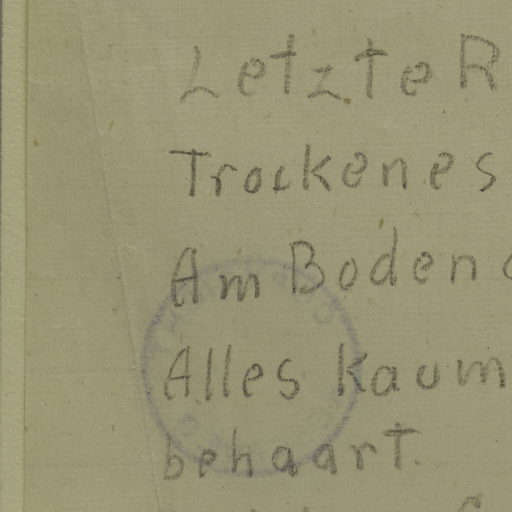 Letzte R
Trockenes
Am Boden
Alles kaum
behaart.